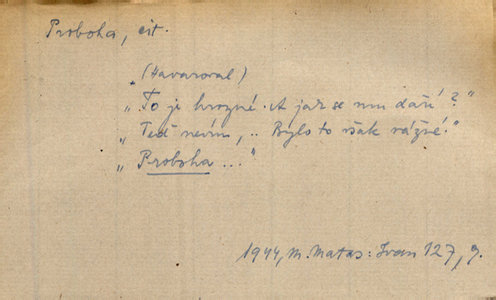 Proboha, cit.
(Havaroval)
„To je hrozné. A jak se mu daří?"
„Teď nevím, .. Bylo to však vážné."
„Proboha ..."
1944, M. Matas: Ivan 127, 9.